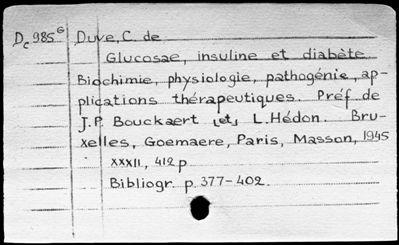 Dc 985G Duve, C. de
Glucosae, insuline et diabète.
Biochimie, physiologie, pathogénie, ap-
plications thérapeutiques. Préf. de
J.P. Bouckaert [et] L. Hédon. Bru-
xelles, Goemaere, Paris, Masson, 1945
XXXII, 412 p
Bibliogr. p. 377-402.